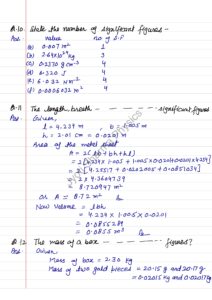 Q.10. State the number of significant figures -
Ans. Value no of S.F
(a) 0.007 m² 1
(b) 2.64x10²⁴ kg 3
(c) 0.2370 g cm⁻³ 4
(d) 6.320 J 4
(e) 6.032 N m⁻² 4
(f) 0.0006032 m² 4
Q.11 The length, breath - significant figures
Ans. Given,
l = 4.234 m , b = 1.005 m
h = 2.01 cm = 0.0201 m
Area of the metal sheet
A = 2(lb + bh + hl)
= 2[4.234x1.005 + 1.005x0.0201+0.0201x4.234]
= 2[4.25517 + 0.0202005 + 0.0851034]
= 2 x 4.3604739
= 8.720947 m²
or A = 8.72 m²
Now Volume = lbh
= 4.234 x 1.005 x 0.0201
= 0.0855289
= 0.0855 m³
Q.12 The mass of a box - figures?
Ans. Given
Mass of box = 2.30 kg
Mass of two gold pieces = 20.15 g and 20.17 g
= 0.02015 kg and 0.02017 kg